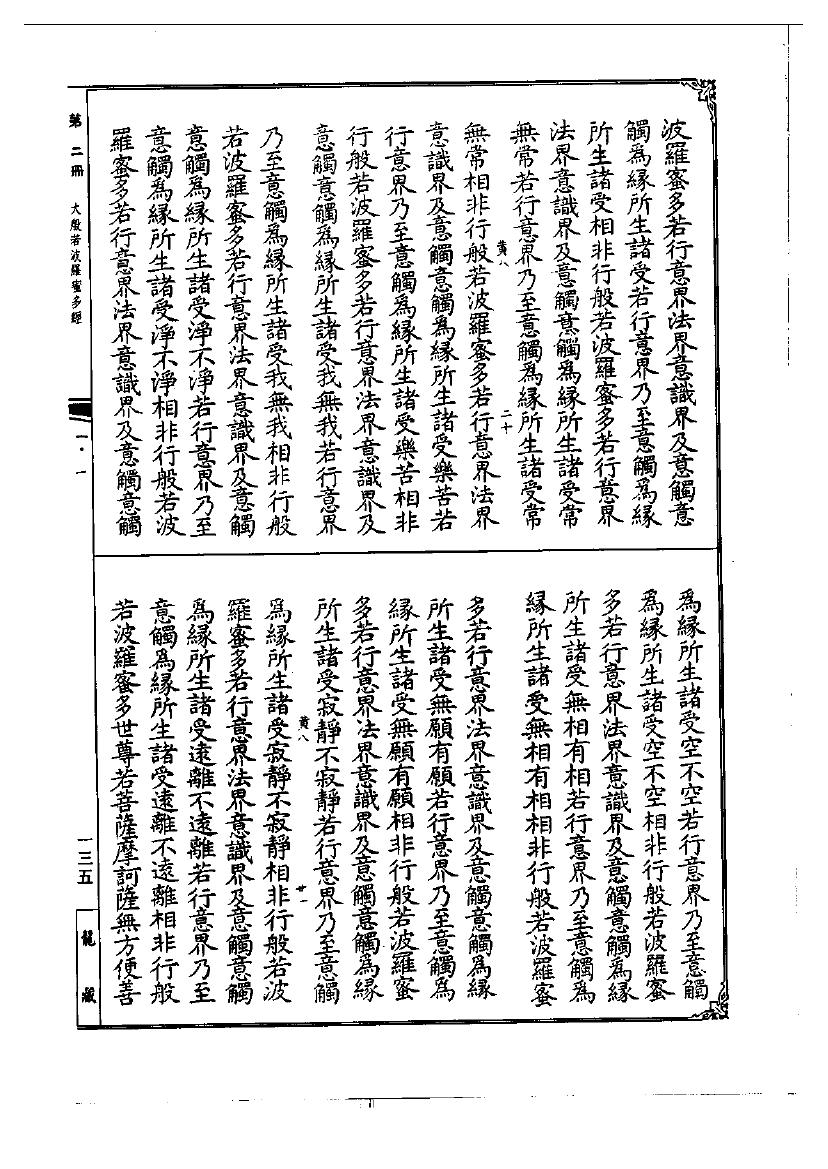 波羅蜜多若行意界法界意識界及意觸意
觸爲緣所生諸受若行意界乃至意觸爲緣
所生諸受相非行般若波羅蜜多若行意界
法界意識界及意觸意觸爲緣所生諸受常
無常若行意界乃至意觸爲緣所生諸受常
黃八
二十
無常相非行般若波羅蜜多若行意界法界
意識界及意觸意觸爲緣所生諸受樂苦若
行意界乃至意觸爲緣所生諸受樂苦相非
行般若波羅蜜多若行意界法界意識界及
意觸意觸爲緣所生諸受我無我若行意界
乃至意觸爲緣所生諸受我無我相非行般
若波羅蜜多若行意界法界意識界及意觸
意觸爲緣所生諸受淨不淨若行意界乃至
意觸爲緣所生諸受淨不淨相非行般若波
羅蜜多若行意界法界意識界及意觸意觸
爲緣所生諸受空不空若行意界乃至意觸
爲緣所生諸受空不空相非行般若波羅蜜
多若行意界法界意識界及意觸意觸爲緣
所生諸受無相有相若行意界乃至意觸爲
緣所生諸受無相有相相非行般若波羅蜜
多若行意界法界意識界及意觸意觸爲緣
所生諸受無願有願若行意界乃至意觸爲
緣所生諸受無願有願相非行般若波羅蜜
多若行意界法界意識界及意觸意觸爲緣
所生諸受寂靜不寂靜若行意界乃至意觸
黃八
廿一
爲緣所生諸受寂靜不寂靜相非行般若波
羅蜜多若行意界法界意識界及意觸意觸
爲緣所生諸受遠離不遠離若行意界乃至
意觸爲緣所生諸受遠離不遠離相非行般
若波羅蜜多世尊若菩薩摩訶薩無方便善
第二冊 大般若波羅蜜多經
一·一
一三五
龍藏